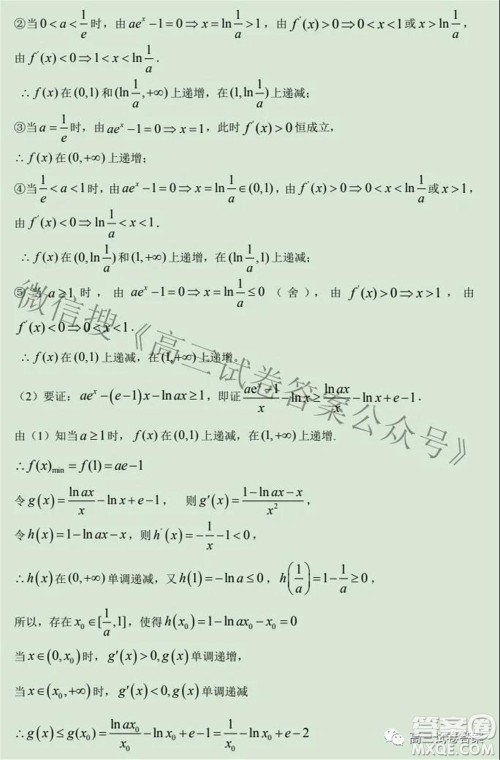 ②当0<a<1/e时，由ae^x−1=0⇒x=ln(1/a)>1，由f′(x)>0⇒0<x<1或x>ln(1/a)，
由f′(x)<0⇒1<x<ln(1/a)．
∴f(x)在(0,1)和(ln(1/a),+∞)上递增，在(1,ln(1/a))上递减；
③当a=1/e时，由ae^x−1=0⇒x=1，此时f′(x)>0恒成立，
∴f(x)在(0,+∞)上递增；
④当1/e<a<1时，由ae^x−1=0⇒x=ln(1/a)∈(0,1)，由f′(x)>0⇒0<x<ln(1/a)或x>1，
由f′(x)<0⇒ln(1/a)<x<1．
∴f(x)在(0,ln(1/a))和(1,+∞)上递增，在(ln(1/a),1)上递减；
⑤当a≥1时，由ae^x−1=0⇒x=ln(1/a)≤0（舍），由f′(x)>0⇒x>1，由
f′(x)<0⇒0<x<1．
∴f(x)在(0,1)上递减，在(1,+∞)上递增．
（2）要证：ae^x−(e−1)x−ln ax≥1，即证(ae^x−1)/x−ln x≥(ln ax)/x−ln x+e−1．
由（1）知当a≥1时，f(x)在(0,1)上递减，在(1,+∞)上递增.
∴f(x)min=f(1)=ae−1
令g(x)=(ln ax)/x−ln x+e−1，则g′(x)=(1−ln ax−x)/x²，
令h(x)=1−ln ax−x，则h′(x)=−1/x−1<0，
∴h(x)在(0,+∞)单调递减，又h(1)=−ln a≤0，h(1/a)=1−1/a≥0，
所以，存在x₀∈[1/a,1]，使得h(x₀)=1−ln ax₀−x₀=0
当x∈(0,x₀)时，g′(x)>0,g(x)单调递增，
当x∈(x₀,+∞)时，g′(x)<0,g(x)单调递减
∴g(x)≤g(x₀)=(ln ax₀)/x₀−ln x₀+e−1=1/x₀−ln x₀+e−2
微信搜《高三试卷答案公众号》
高三试卷答案
答案圈
MXQE.COM